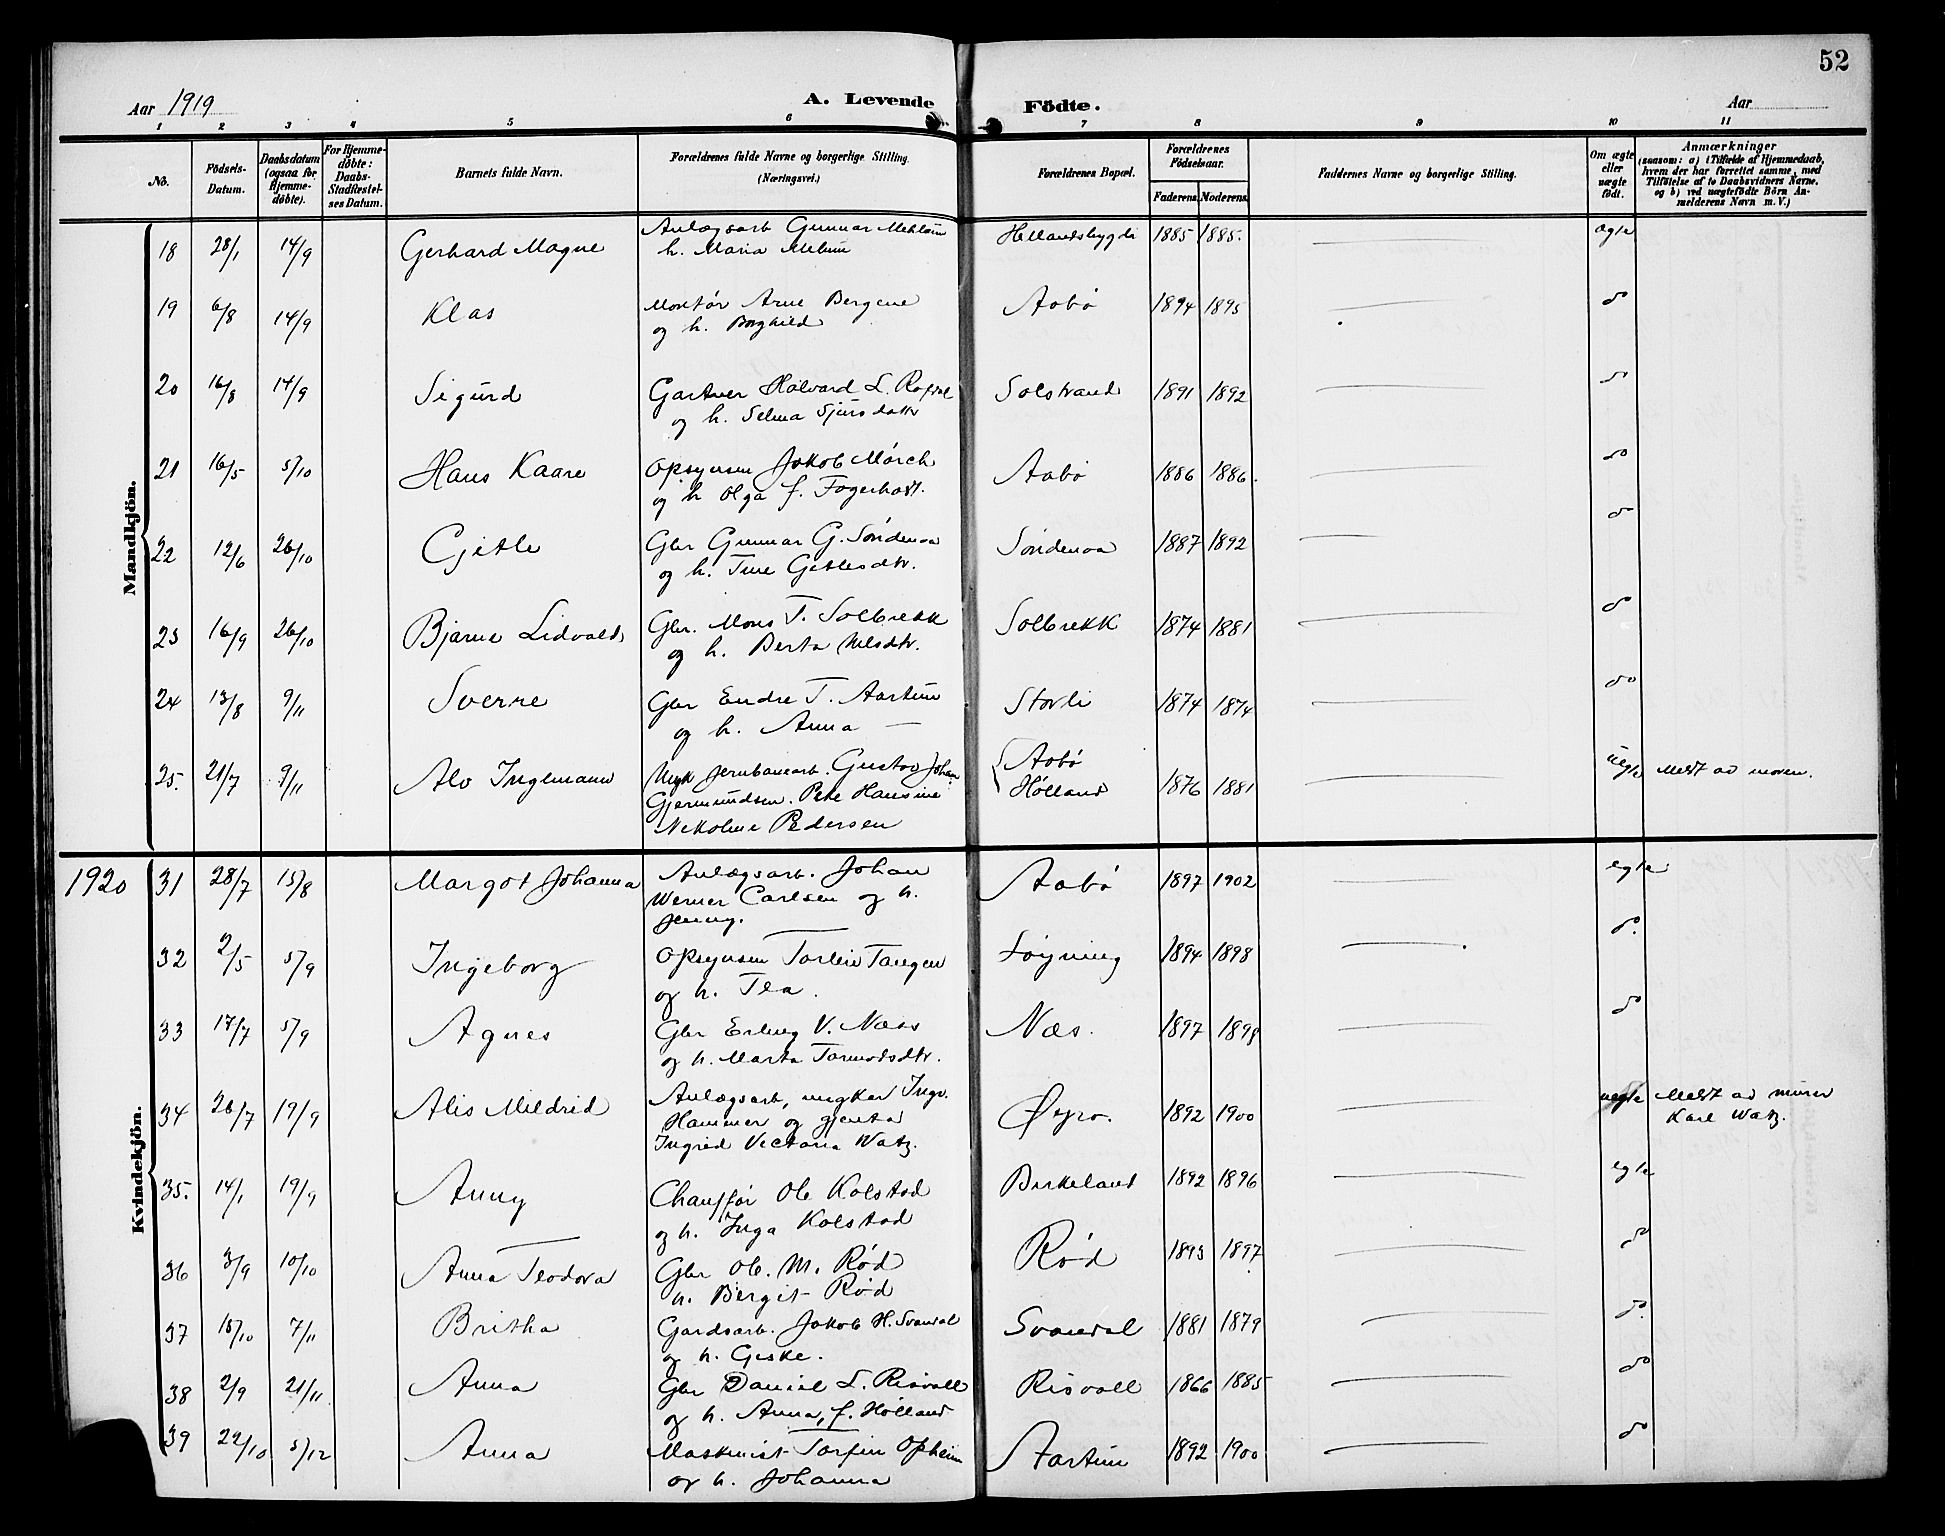 52
Aar 1919
A. Levende Födte.
Aar
1 2 3 4 5 6 7 8 9 10 11
No.
Födsels-Datum.
Daabsdatum (ogsaa for Hjemme-döbte).
For Hjemme-döbte: Daabs-Stadfæstel-ses Datum.
Barnets fulde Navn.
Forældrenes fulde Navne og borgerlige Stilling.
(Næringsvei.)
Forældrenes Bopæl.
Forældrenes Födselsaar.
Faderens. Moderens.
Faddernes Navne og borgerlige Stilling.
Om ægte eller uægte födt.
Anmærkninger
(saasom: a) i Tilfælde af Hjemmedaab,
hvem der har forrettet samme, med
Tilföielse af to Daabsvidners Navne.
og b) ved uægtefödte Börn An-
melderens Navn m. V.)
Mandkjön.
18 28/1 14/9 Gerhard Magne Anlægsarb Gunnar Mehlum Hellandsbygdi 1885 1885. ægte
h. Maria Mehum
19 6/8 14/9 Klas Montør Arne Bergene Aabø 1894 1895 do
og h. Borghild
20 16/8 14/9 Sigurd Gartner Halvard L. Solstrand 1891 1892 do
og h. Selma Sjursdattr
21 16/5 5/10 Hans Kaare Opsynsm Jakob Mörch Aabø 1886 1886. do
og h Olga f. Fagerholt.
22 12/6 26/10 Gjetle Gbr Gunnar G. Söndenaa Söndenaa 1887 1892 do
og h. Tine Gjetlesdtr.
23 16/9 26/10 Bjarne Lidvald Gbr. Mons T. Solbrekk Solbrekk 1874 1881 do
og h. Berta Nilsdtr.
24 13/8 9/11 Sverre Gbr Endre T. Aartun Storli 1874 1874 do
og h. Anna —
25. 21/7 9/11 Alv Ingemann Ungk Jernbanearb. Gustav Johan Aabø 1876 1881 uegte Meldt av moren.
Gjermundsen. Pete Hansine Hølland
Nikoline Pedersen
1920
Kvindekjön.
31 28/7 15/8 Margot Johanna Anlægsarb. Johan Aabø 1897 1902 egte
Werner Carlsen og h.
Jenny.
32 2/5 5/9 Ingeborg Opsynsm Torleiv Tangen Løyning 1894 1898 do.
og h. Tea.
33 17/7 5/9 Agnes Gbr Erling V. Næss Næs. 1897 1898 do
og h. Marta Tormodsdtr.
34 26/7 19/9 Alis Mildrid Anlægsarb, ungkar Ingv. Øyro. 1892 1900 uegte Meldt av murer
Hammer og gjenta Karl Watz.
Ingrid Victoria Watz.
35. 14/1 19/9 Anny Chauffør Ole Kolstad Birkeland 1892 1896 egte
og h. Inga Kolstad
36 3/9 10/10 Anna Teodora Gbr Ole. M. Rød Rød 1893 1897 do
h. Bergit Rød
37 15/10 7/11 Britha Gardsarb. Jakob H. Svandal Svandal 1881 1879 do.
og h. Giske.
38 2/9 21/11 Anna Gbr Daniel L. Risvoll Risvoll 1866 1885 do
og h. Anna, f. Hølland
39 22/10 5/12 Anna Maskinist Torfin Opheim Aartun 1892 1900 do
og h. Johanna